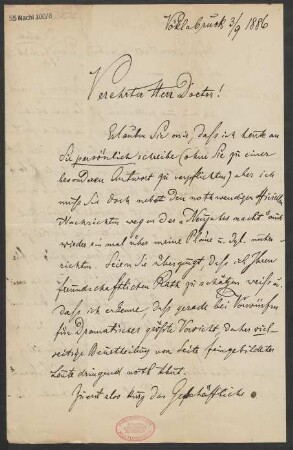 Vöklabruck 3/9 1886
Verehrter Herr Doctor!
Erlauben Sie mir, daß ich heute an
Sie persönlich schreibe (ohne Sie zu einer
besonderen Antwort zu verpflichten) aber ich
muß Sie doch nebst den nothwendigen officiellen
Nachrichten wegen der "Neujahrsnacht" auch
wieder einmal über meine Pläne u. dgl. unter-
richten. Seien Sie überzeugt, daß ich Ihren
freundschaftlichen Rath zu schätzen weiß u.
daß ich erkenne, daß gerade bei Vorwürfen
für Dramatisches größte Vorsicht, daher viel-
seitige Beurtheilung von Seite feingebildeter
Leute dringend noth thut.
Zuerst also kurz das Geschäftliche.